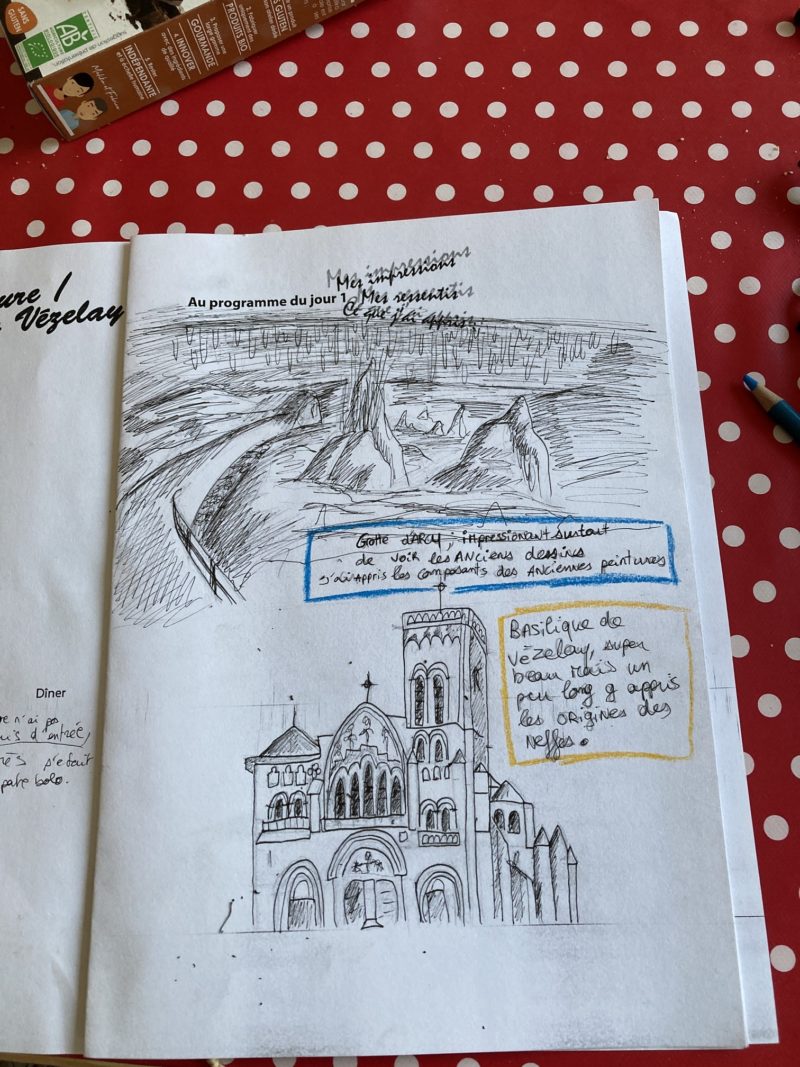 SANS GLUTEN
AB
suggestion de présentation
PRODUITS BIO
GOURMANDE
4. INNOVER
INDÉPENDANTE
ure /
Vézelay
Mes impressions
Mes impressions
Au programme du jour 1
Mes ressentis
Ce que j'ai appris
Grotte d'ARCY ; impressionant surtout
de voir les Anciens dessins
J'ai appris les composants des Anciennes peintures
BASilique de
Vézelay, super
beau mais un
peu long g appris
les origines des
neffes.
Dîner
re n'ai pas
d'entrée,
s'etait
pate bolo.